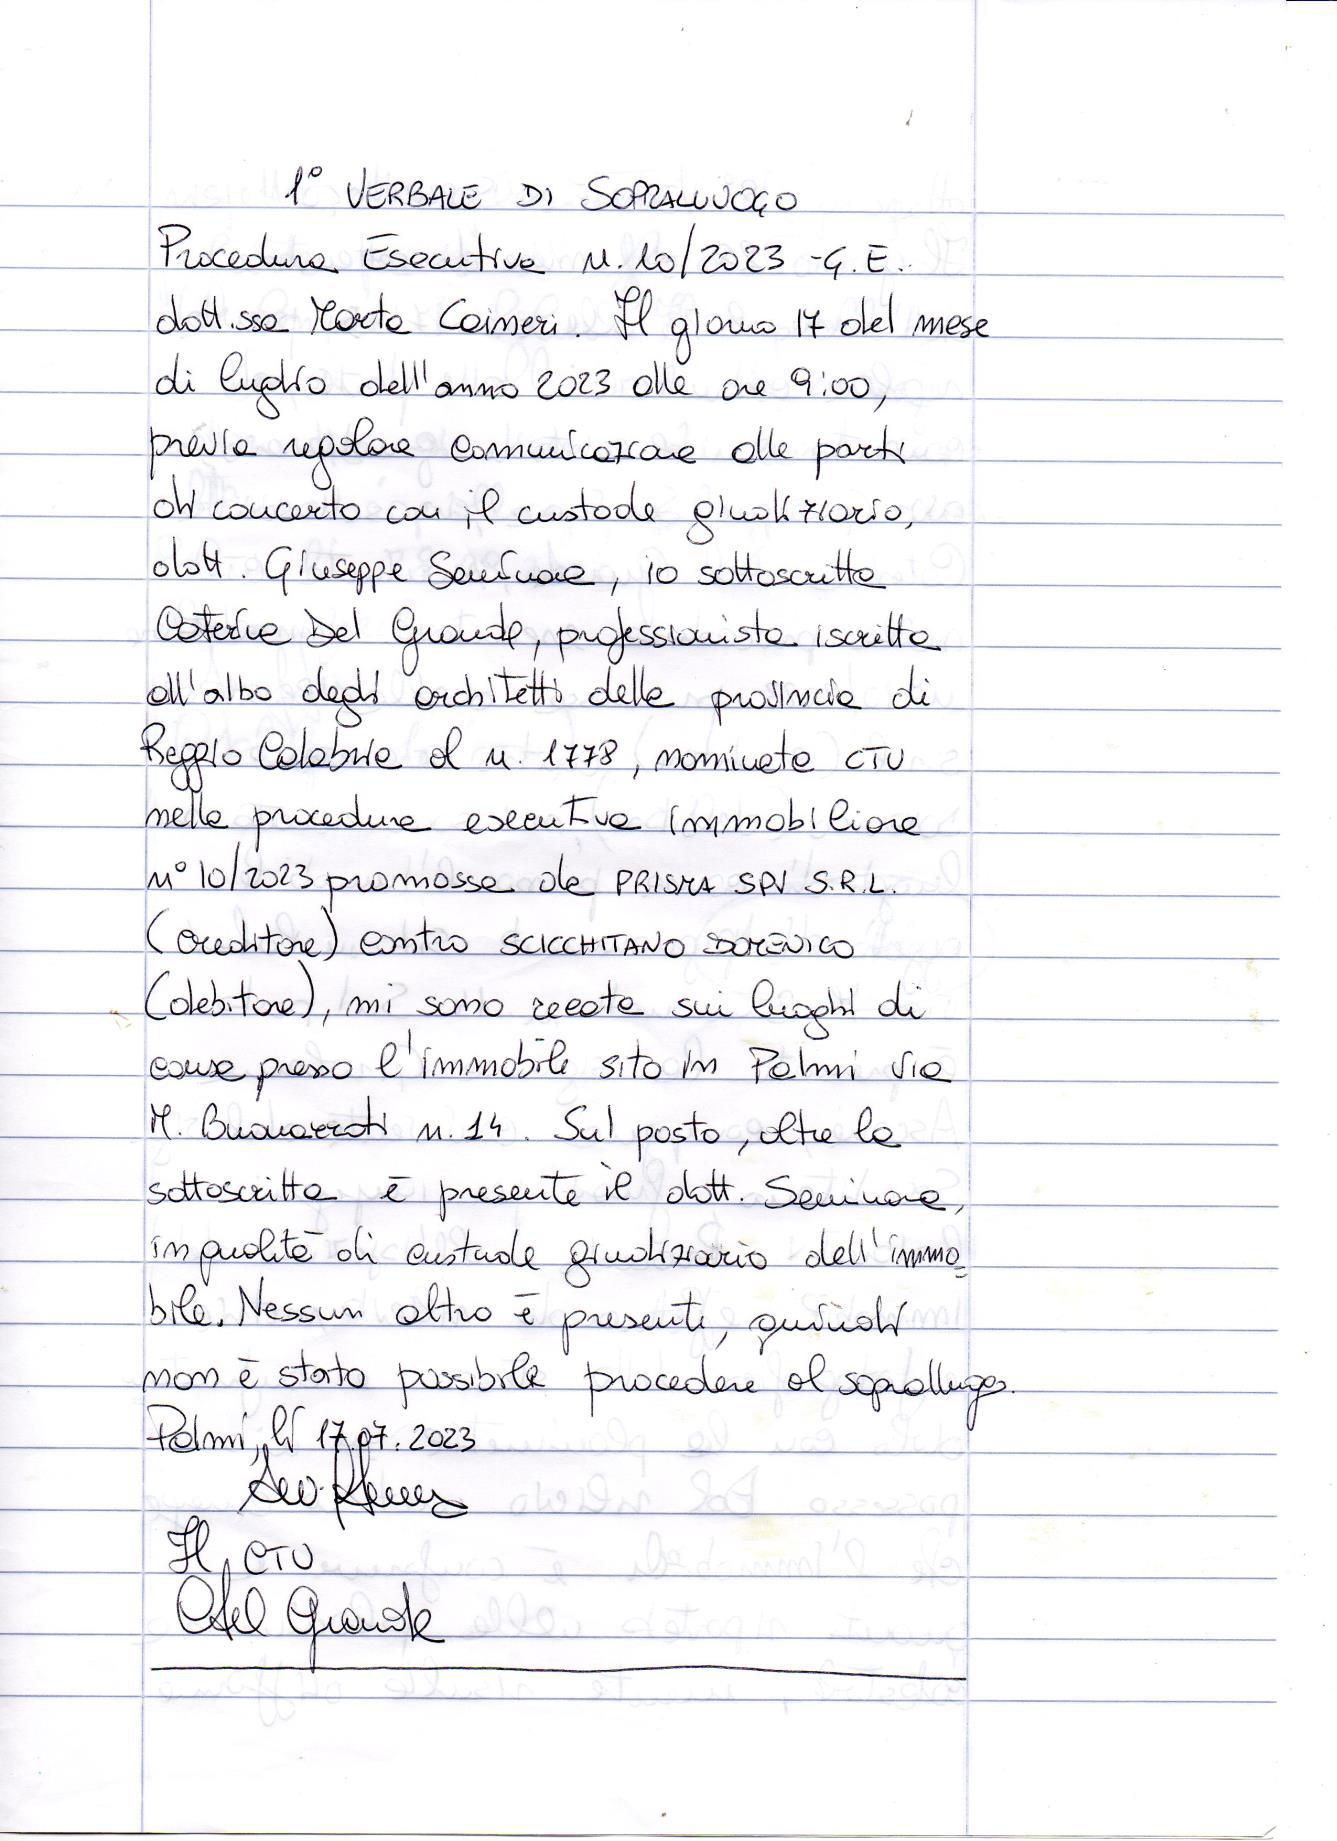 1° VERBALE DI SOPRALLUOGO
Procedura Esecutiva n. 10/2023 - G.E.
dott.ssa Marta Caineri. Il giorno 17 del mese
di luglio dell'anno 2023 alle ore 9:00,
previa regolare comunicazione alle parti
di concerto con il custode giudiziario,
dott. Giuseppe Seminara, io sottoscritta
Caterina Del Grande, professionista iscritta
all'albo degli architetti della provincia di
Reggio Calabria al n. 1778, nominata CTU
nella procedura esecutiva immobiliare
n° 10/2023 promossa da PRISMA SPV S.R.L.
(creditore) contro SCICCHITANO DOMENICO
(debitore), mi sono recata sui luoghi di
causa presso l'immobile sito in Palmi via
M. Buonarroti n. 14. Sul posto, oltre la
sottoscritta è presente il dott. Seminara,
in qualità di custode giudiziario dell'immo=
bile. Nessun altro è presente, quindi
non è stato possibile procedere al sopralluogo.
Palmi, lì 17.07.2023
Il CTU
CDel Grande